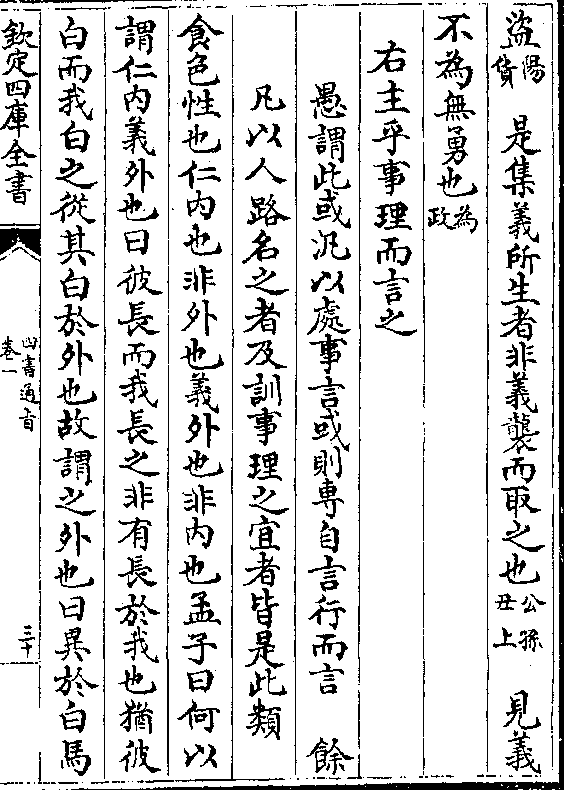 盜陽貨　是集義所生者非義襲而取之也公孫丑上　見義
不為無勇也為政
右主乎事理而言之
愚謂此或汎以處事言或則專自言行而言　餘
凡以人路名之者及訓事理之宜者皆是此類
食色性也仁內也非外也義外也非內也孟子曰何以
謂仁內義外也曰彼長而我長之非有長於我也猶彼
白而我白之從其白於外也故謂之外也曰異於白馬
欽定四庫全書
四書通旨
卷一
三十